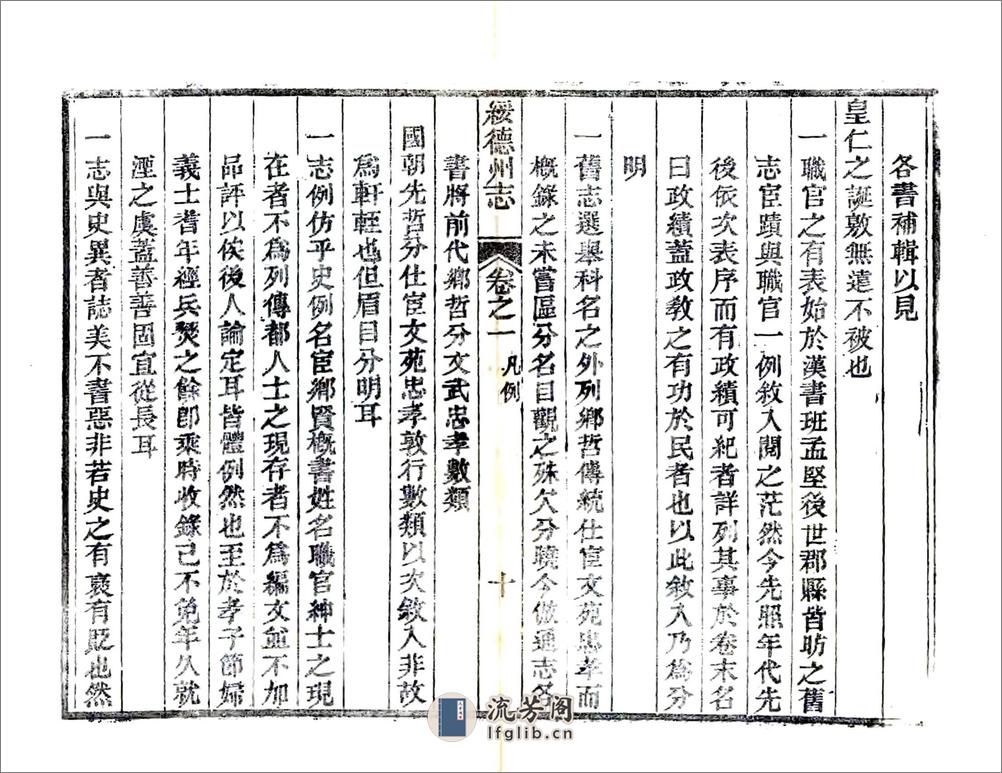 各書補輯以見
皇仁之誕敷無遠不被也
一職官之有表始於漢書班孟堅後世郡縣皆昉之舊
志宦蹟與職官一例敘入閱之茫然今先照年代先
後依次表序而有政績可紀者詳列其事於卷末名
曰政績蓋政教之有功於民者也以此敘入乃爲分
明
一舊志選舉科名之外列鄉哲傳統仕宦文苑忠孝而
概錄之未嘗區分名目觀之殊欠分曉今倣通志名
綏德州志 卷之一 凡例 十
書將前代鄉哲分文武忠孝數類
國朝先哲分仕宦文苑忠孝敦行數類以次敘入非故
爲軒輊也但眉目分明耳
一志例仿乎史例名宦鄉賢概書姓名職官紳士之現
在者不爲列傳都人士之現存者不爲編文並不加
品評以俟後人論定耳皆體例然也至於孝子節婦
義士耆年經兵燹之餘卽乘時收錄已不免年久就
湮之虞蓋善善固宜從長耳
一志與史異者誌美不書惡非若史之有褒有貶也然
流芳阁
lfglib.cn